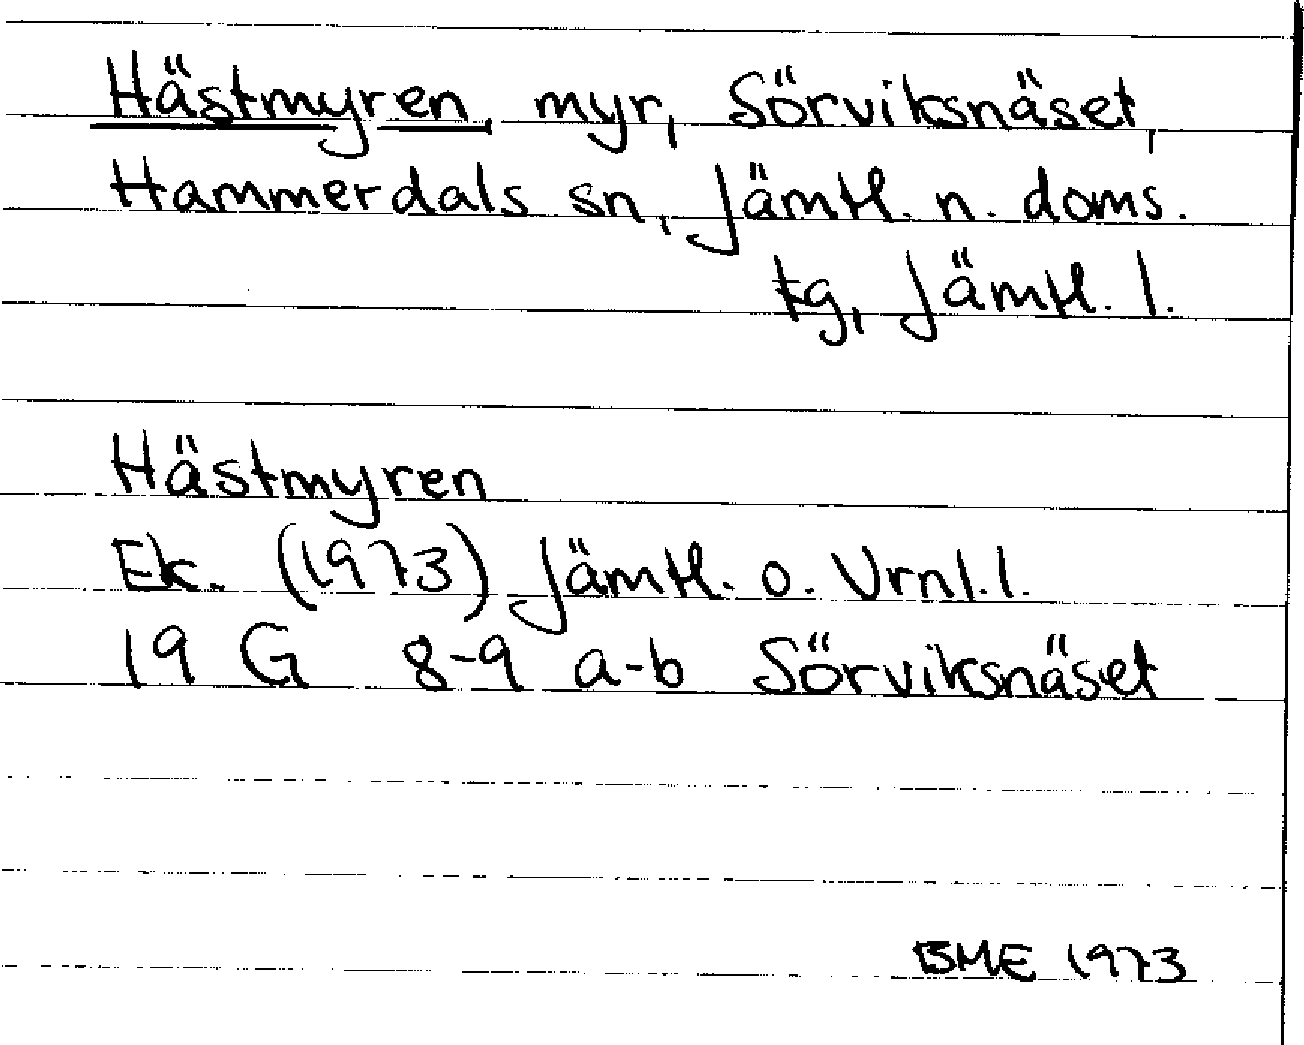 Hästmyren, myr, Sörviksnäset,
Hammerdals sn, Jämtl. n. doms.
tg, Jämtl. l.
Hästmyren
Ek. (1973) Jämtl. o. Vrnl. l.
19 G 8-9 a-b Sörviksnäset
BME 1973